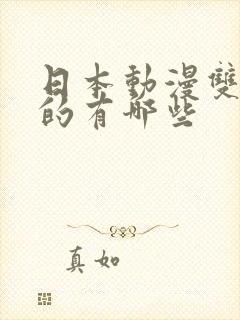 日本動漫雙
的有哪些
真如